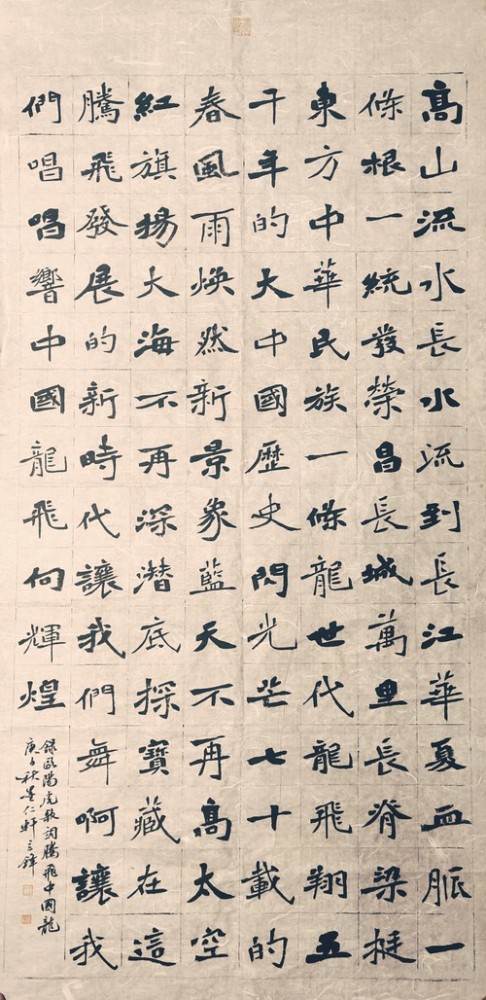 高山流水長水流到長江華夏血脈一
條根一統發榮昌長城萬里長脊梁挺
東方中華民族一條龍世代龍飛翔五
千年的大中國歷史閃光芒七十載的
春風雨煥然新景象藍天不再高太空
紅旗揚大海不再深潛底探寶藏在這
騰飛發展的新時代讓我們舞啊讓我
們唱唱響中國龍飛向輝煌
錄歐陽虎歌詞騰飛中國龍
庚子秋 仁軒